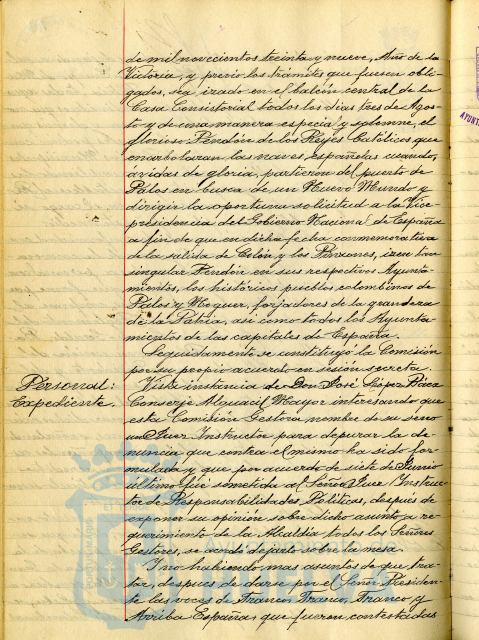 de mil novecientos treinta y nueve, Año de la
Victoria, y previo los trámites que fuesen obli-
gados, sea izado en el balcón central de la
Casa Consistorial todos los días tres de Agos-
to y de una manera especial y solemne, el
glorioso Pendón de los Reyes Católicos que
enarbolaran las naves españolas cuando,
ávidas de gloria, partieron del puerto de
Palos en busca de un Nuevo Mundo y
dirigir la oportuna solicitud a la Vice-
presidencia del Gobierno Nacional de España
a fin de que en dicha fecha conmemorativa
de la salida de Colón y los Pinzones, icen tan
singular Pendón en sus respectivos Ayunta-
mientos, los históricos pueblos colombinos de
Palos y Moguer, forjadores de la grandeza
de la Patria, así como todos los Ayunta-
mientos de las capitales de España.
Seguidamente se constituyó la Comisión
por su propio acuerdo en sesión secreta
Personal:
Expediente.
Vista instancia de Don José López
Conserje Alguacil Mayor interesando que
esta Comisión Gestora nombre de su seno
un Juez Instructor para depurar la de-
nuncia que contra el mismo ha sido for-
mulada y que por acuerdo de siete de Junio
último fué sometida al Señor Juez Instruc-
tor de Responsabilidades Políticas, después de
exponer su opinión sobre dicho asunto a re-
querimiento de la Alcaldía todos los Señores
Gestores, se acordó dejarlo sobre la mesa.
Y no habiendo mas asuntos de que tra-
tar, despues de darse por el Señor Presiden-
te las voces de Franco, Franco, Franco y
Arriba España, que fueron contestadas
AYUNT